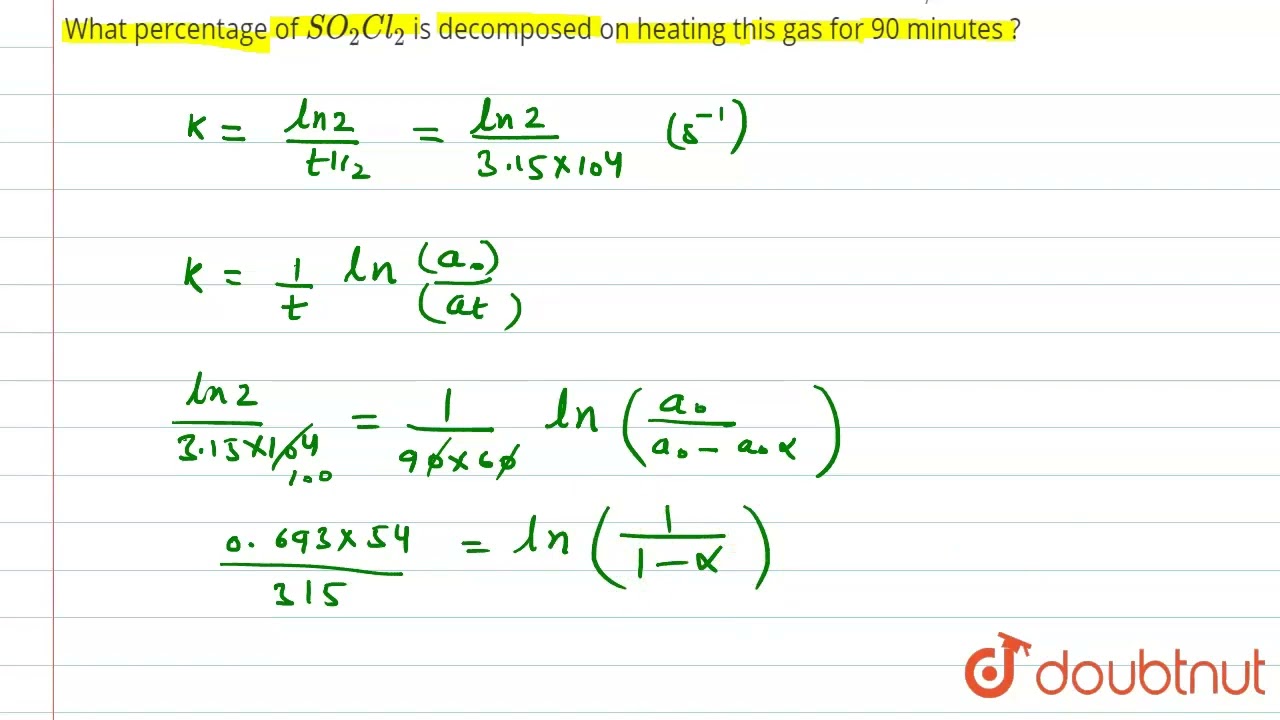 What percentage of SO₂Cl₂ is decomposed on heating this gas for 90 minutes ?
K = ln2 / t1/2 = ln2 / 3.15×10⁴ (s⁻¹)
K = 1/t ln (a₀)/(at)
ln2 / 3.15×10⁴ 100 = 1 / 90×60 ln (a₀ / a₀ - a₀α)
0.693×54 / 315 = ln (1 / 1-α)
doubtnut